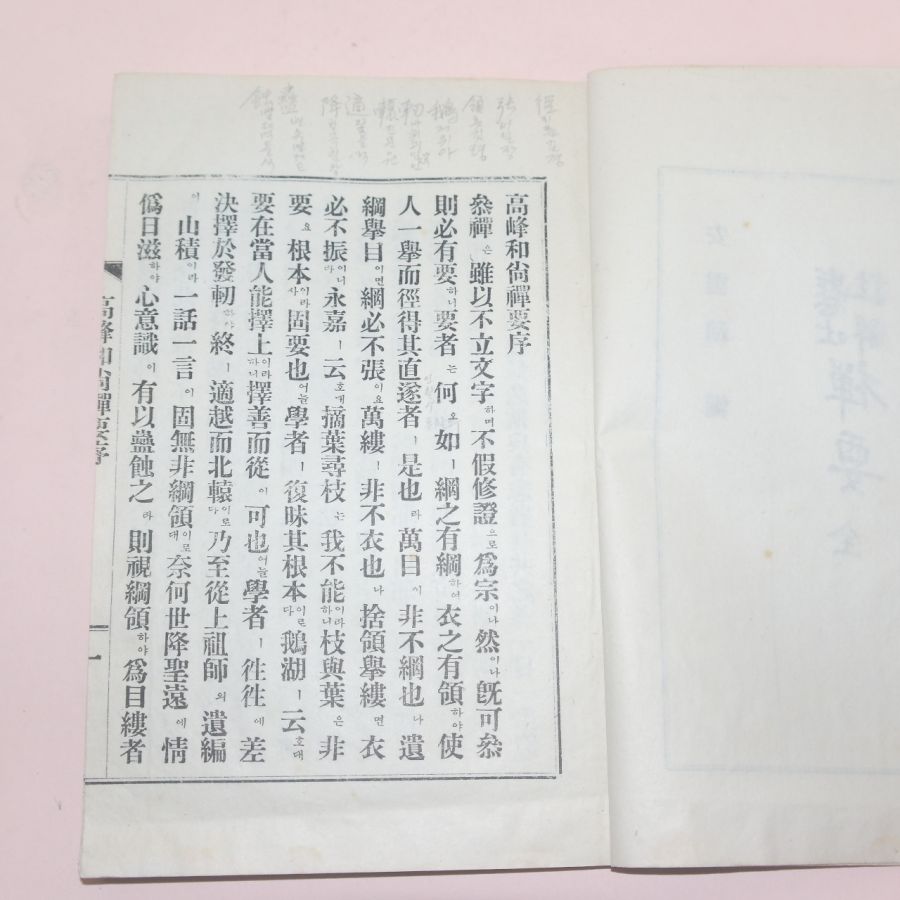 高峰和尙禪要序
叅禪은雖以不立文字하며不假修證으로爲宗이나然이나旣可叅
則必有要하니要者는何오如ㅣ綱之有綱하여衣之有領하야使
人一擧而徑得其直遂者ㅣ是也라萬目이非不綱也나遺
綱擧目이면綱必不張이요萬縷ㅣ非不衣也나捨領擧縷면衣
必不振이니다永嘉ㅣ云호대摘葉尋枝는我不能이라하니枝與葉은非
要요根本사이라固要也여늘學者ㅣ復昧其根本이로다鵝湖ㅣ云호대
要在當人能擇上이라하니擇善而從이可也여늘學者ㅣ往往에差
決擇於發軔하야終ㅣ適越而北轅이로다乃至從上祖師의遺編
이山積이라一話一言이固無非綱領이로대奈何世降聖遠에情
僞日滋하야心意識이有以蠱蝕之라則視綱領하야爲目縷者
高峰和尙禪要序
一
禪要